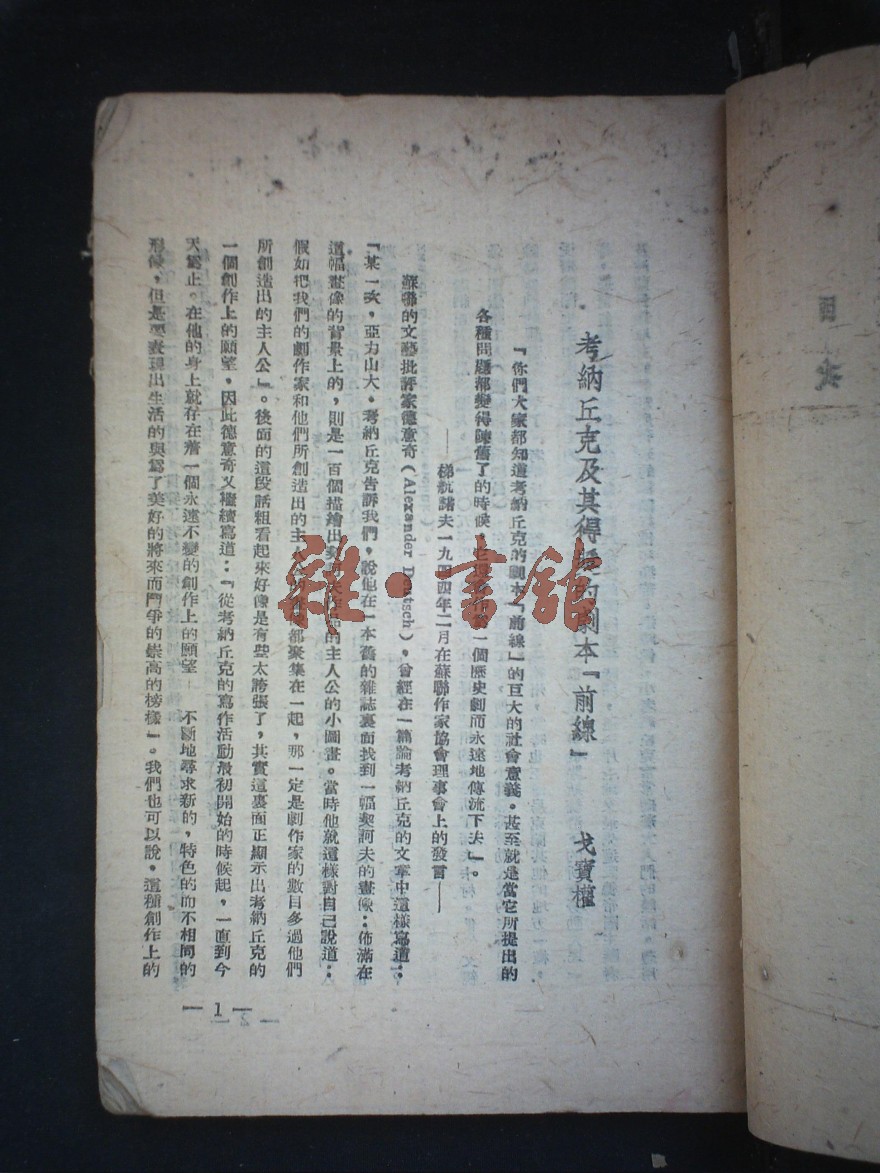 目次
考納丘克及其得獎的劇本『前線』
戈寶權
『你們大家都知道考納丘克的劇本『前線』的巨大的社會意義。甚至就是當它所提出的
各種問題都變得陳舊了的時候，一個歷史劇而永遠地傳流下去』。
——梯航諾夫一九四四年二月在蘇聯作家協會理事會上的發言——
蘇聯的文藝批評家德意奇（Alexander Deutsch），曾經在一篇論考納丘克的文章中這樣寫道：
『某一次，亞力山大。考納丘克告訴我們，說他在一本舊的雜誌裏面找到一幅契訶夫的畫像：佈滿在
這幅畫像的背景上的，則是一百個描繪出契訶夫作品的主人公的小圖畫。當時他就這樣對自己說道：
假如把我們的劇作家和他們所創造出的主人公都聚集在一起，那一定是劇作家的數目多過他們
所創造出的主人公』。後面的這段話粗看起來好像是有些太誇張了，其實這裏面正顯示出考納丘克的
一個創作上的願望，因此德意奇又繼續寫道：『從考納丘克的寫作活動最初開始的時候起，一直到今
天爲止。在他的身上就存在着一個永遠不變的創作上的願望 不斷地尋求新的，特色的而不相同的
形候，但是要表現出生活的與爲了美好的將來而鬥爭的崇高的榜樣』。我們也可以說。這種創作上的
— 1 —
雜·書館